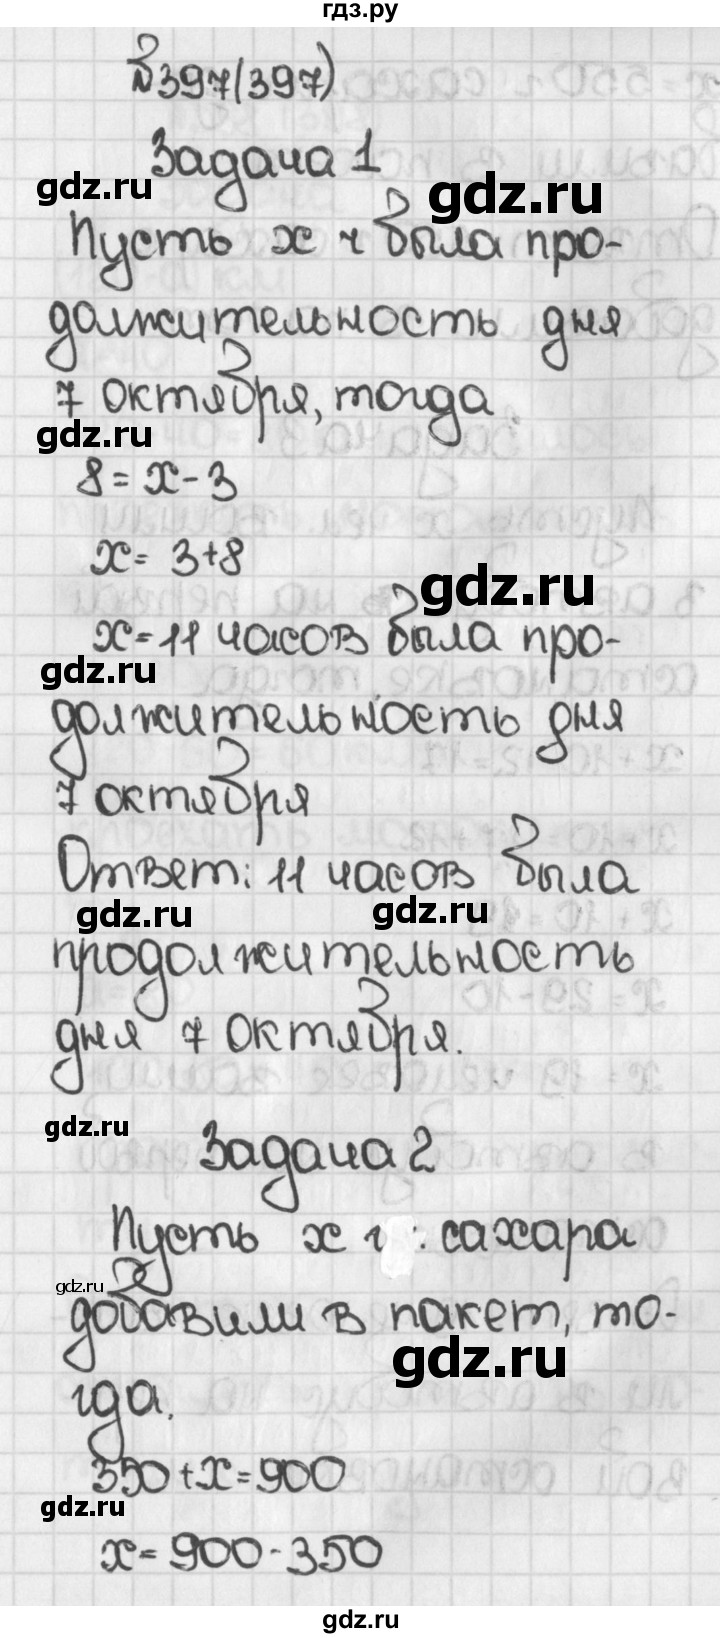 гдз.ру
№397(397)
Задача 1
gdz.ru
gdz.ru
Пусть x ч была про-
должительность дня
7 октября, тогда
gdz.ru
8 = x - 3
x = 3+8
gdz.ru
x = 11 часов была про-
gdz.ru
должительность дня
7 октября
Ответ: 11 часов была
gdz.ru
gdz.ru
продолжительность
дня 7 октября.
gdz.ru
Задача 2
Пусть x г сахара
gdz.ru
добавили в пакет, то-
gdz.ru
гда.
350 + x = 900
gdz.ru
x = 900 - 350
gdz.ru